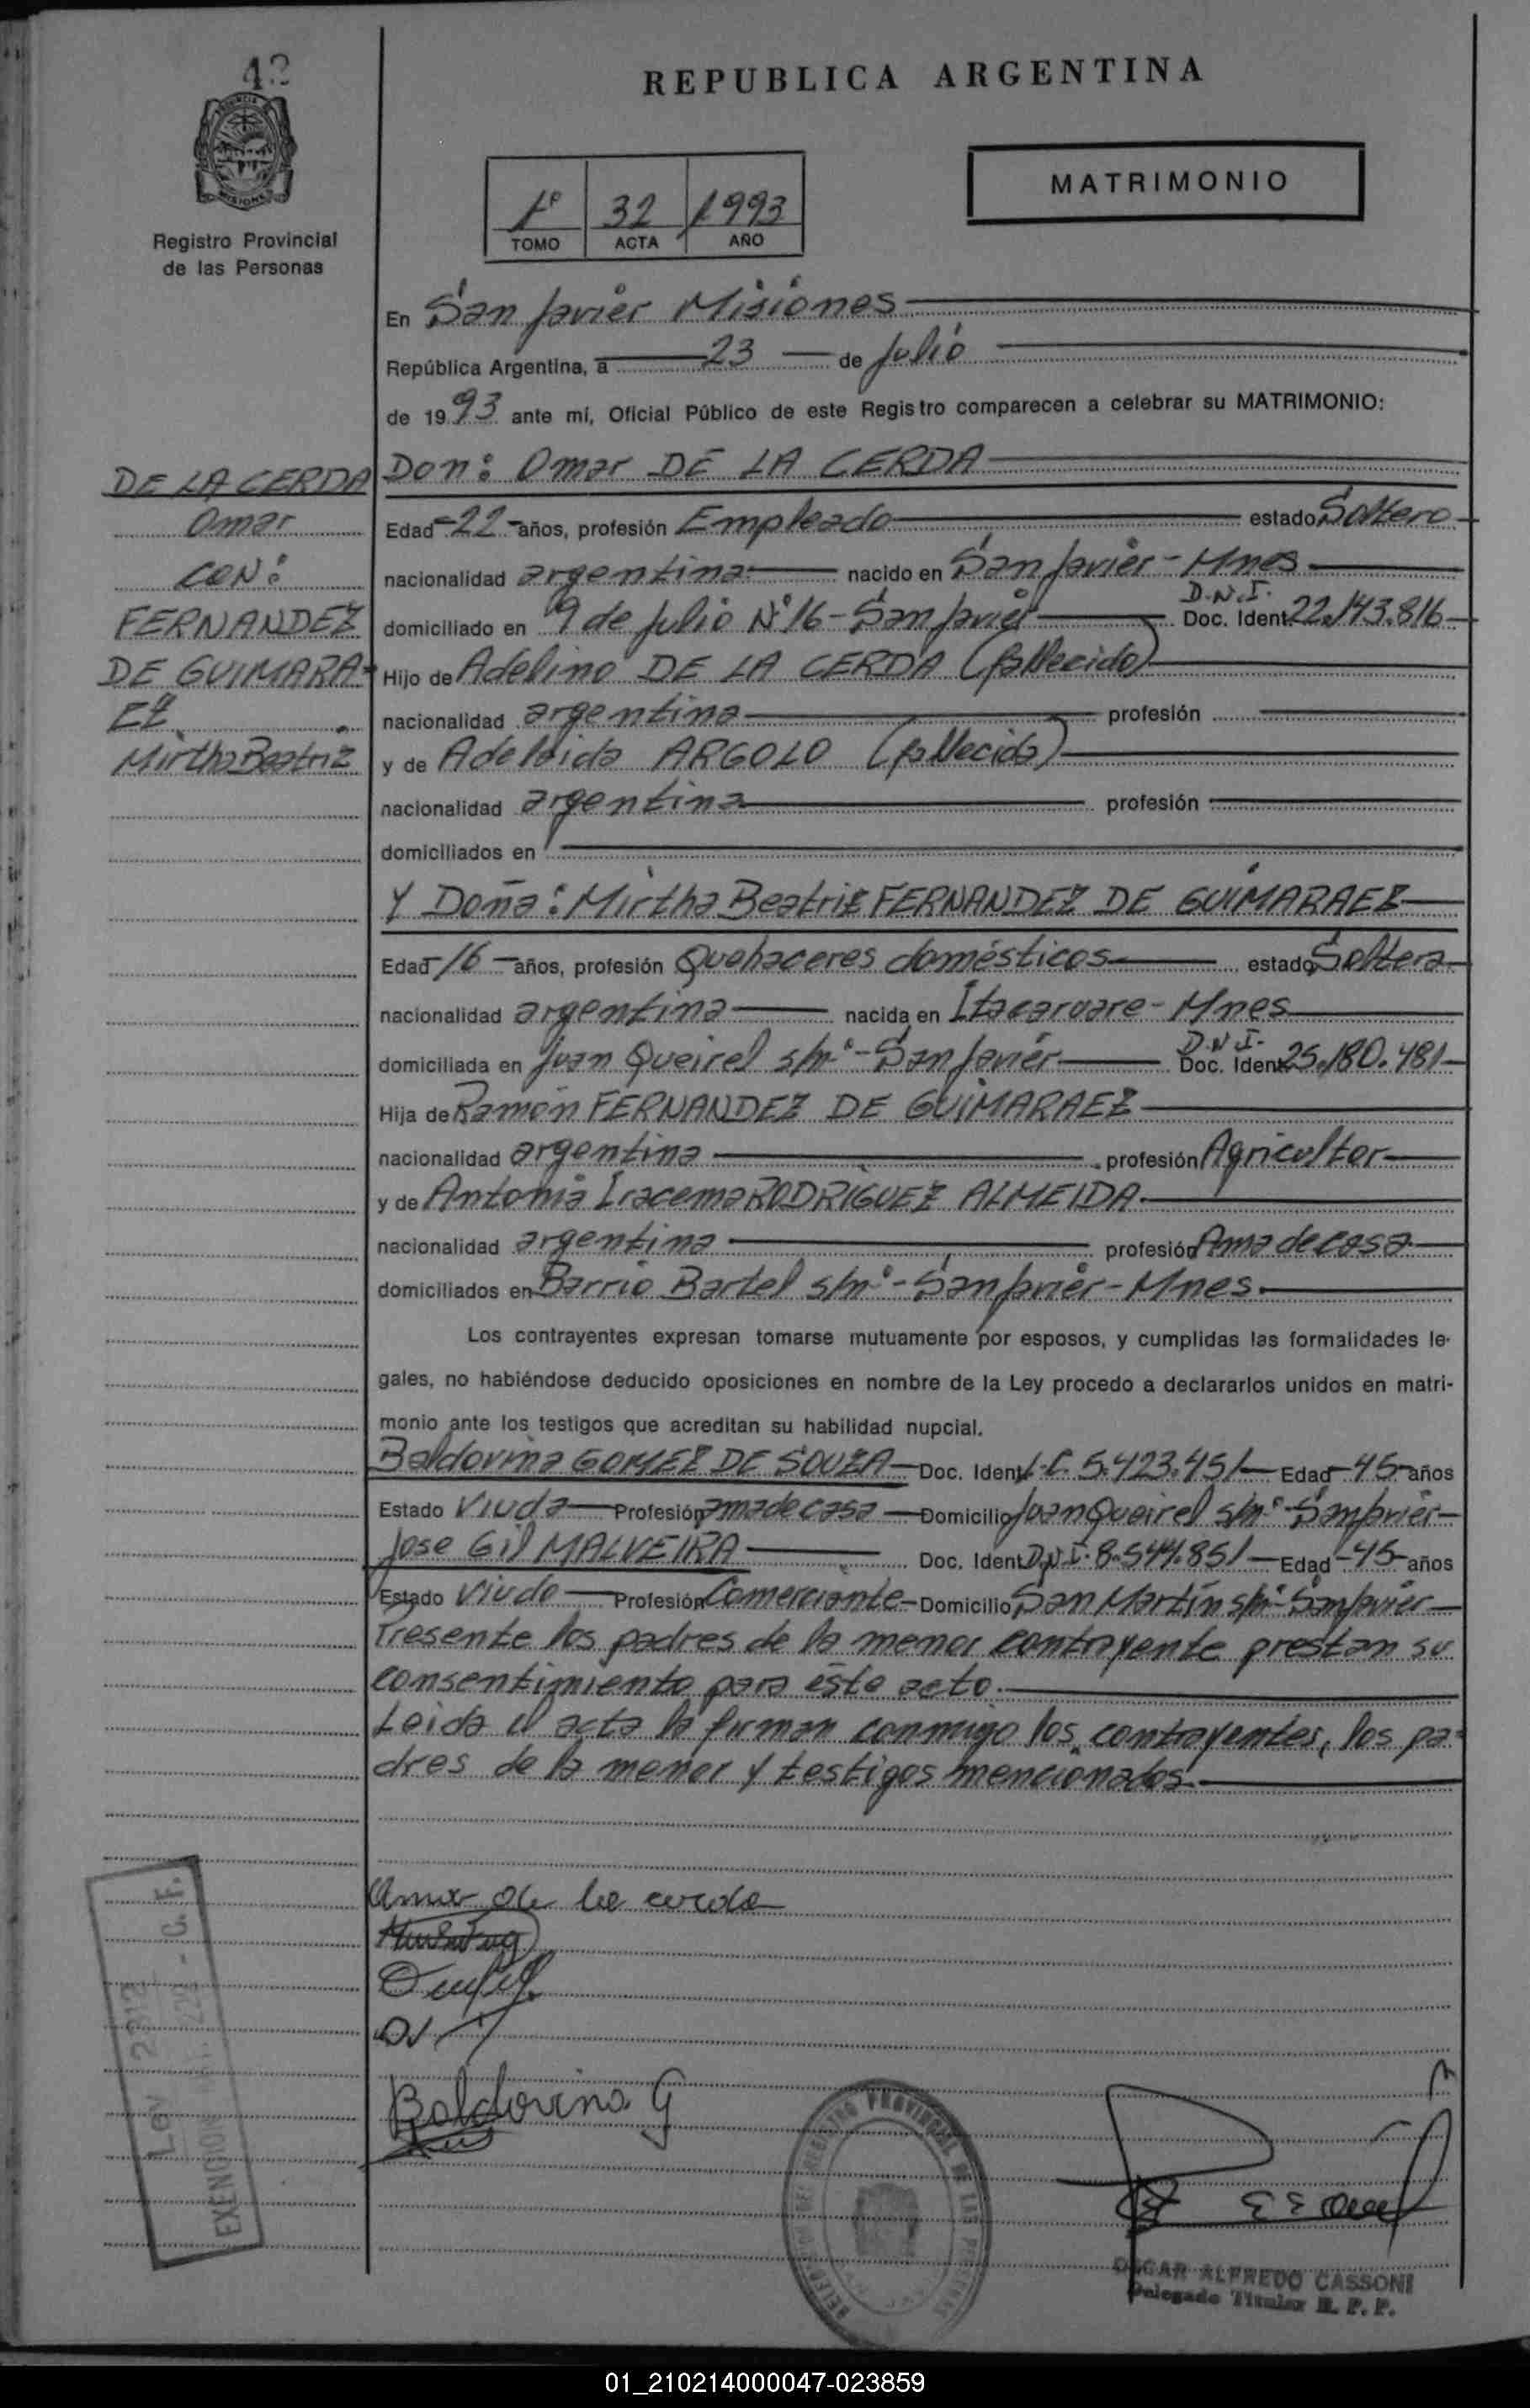 42
REPUBLICA ARGENTINA
MISIONES
Registro Provincial
de las Personas
1º 32 1993
TOMO ACTA AÑO
MATRIMONIO
En San Javier Misiones
República Argentina, a 23 de Julio
de 19 93 ante mí, Oficial Público de este Registro comparecen a celebrar su MATRIMONIO:
DE LA CERDA
Omar
CON:
FERNANDEZ
DE GUIMARA-
EZ
Mirtha Beatriz
Don: Omar DE LA CERDA
Edad -22- años, profesión Empleado estado Soltero
nacionalidad argentina nacido en San Javier - Mnes
domiciliado en 9 de Julio Nº 16 - San Javier D.N.I. Doc. Ident. 22.143.816
Hijo de Adelino DE LA CERDA (fallecido)
nacionalidad argentina profesión
y de Adelaida ARGOLO (fallecida)
nacionalidad argentina profesión
domiciliados en
Y Doña: Mirtha Beatriz FERNANDEZ DE GUIMARAEZ
Edad -16- años, profesión Quehaceres domésticos estado Soltera
nacionalidad argentina nacida en Itacaruare - Mnes
domiciliada en Juan Queirel s/nº - San Javier D.N.I. Doc. Ident. 25.180.481
Hija de Ramón FERNANDEZ DE GUIMARAEZ
nacionalidad argentina profesión Agricultor
y de Antonia Iracema RODRIGUEZ ALMEIDA
nacionalidad argentina profesión Ama de casa
domiciliados en Barrio Bartel s/nº - San Javier - Mnes.
Los contrayentes expresan tomarse mutuamente por esposos, y cumplidas las formalidades le-
gales, no habiéndose deducido oposiciones en nombre de la Ley procedo a declararlos unidos en matri-
monio ante los testigos que acreditan su habilidad nupcial.
Baldovina GOMEZ DE SOUZA Doc. Ident. L.C. 5.423.451 Edad -45- años
Estado Viuda Profesión ama de casa Domicilio Juan Queirel s/nº San Javier
Jose Gil MALVEIRA Doc. Ident. D.N.I. 8.544.851 Edad -45- años
Estado Viudo Profesión Comerciante Domicilio San Martín s/nº San Javier
Presente los padres de la menor contrayente prestan su
consentimiento para éste acto.
Leida el acta la firman conmigo los contrayentes, los pa-
dres de la menor y testigos mencionados.
Omar de la cerda
Baldovina G
Ley 2312 - G. F.
OSCAR ALFREDO CASSONI
Delegado Titular R. P. P.
01_210214000047-023859